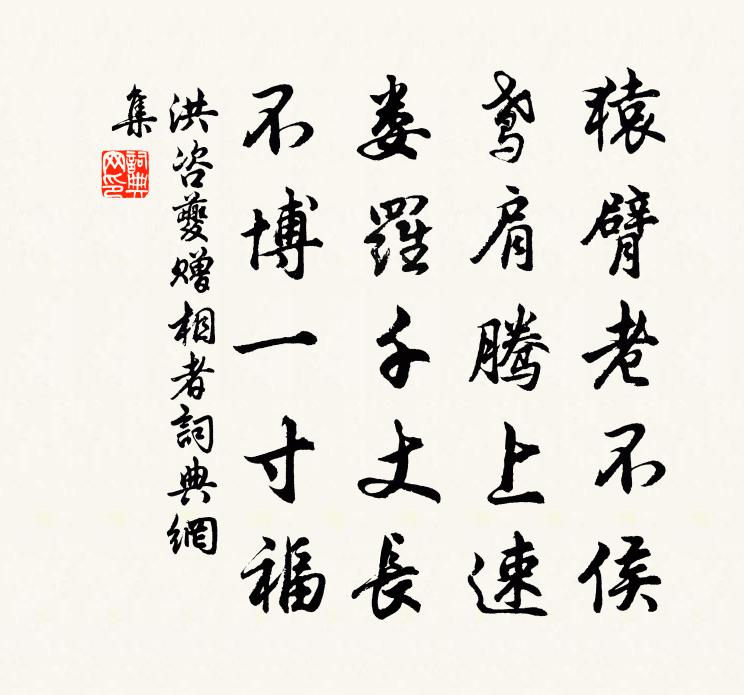 猿臂老不侯
鸢肩腾上速
娄罗千丈長
不博一寸福
洪咨夔赠相者詞典網
集
詞典網印